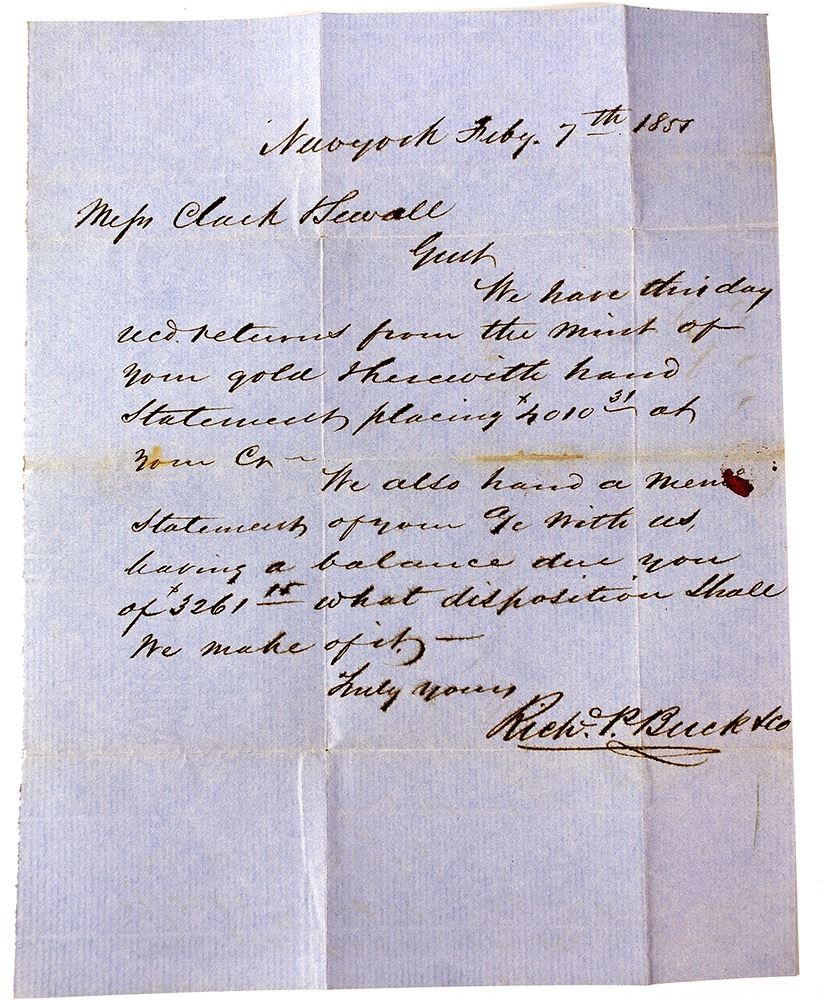 Newyork Feby. 7th 1851
Messrs Clark & Sewall
Gent
We have this day
recd. returns from the mint of
your gold & herewith hand
statement, placing $4010 31 at
your Cr ~
We also hand a memo
statement, of your a/c with us,
having a balance due you
of $3261 15 what disposition shall
We make of it, —
Truly yours
Richd. P. Buck & Co